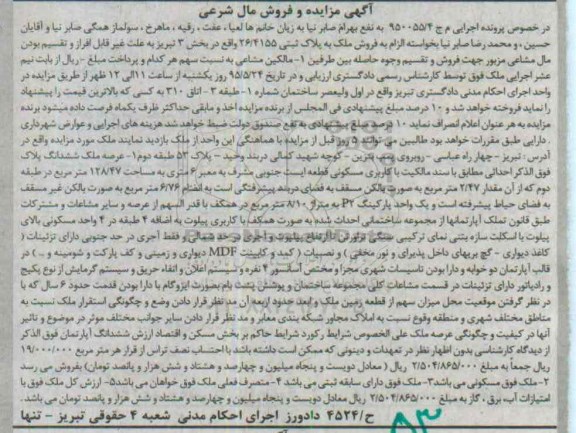 آگهی مزایده و فروش مال شرعی
در خصوص پرونده اجرایی م ج ۹۵۰۰۵۵/۴ به نفع بهرام صابر نیا به زیان خانم ها لعیا ، عفت ، رقیه ، ماهرخ ، سولماز همگی صابر نیا و آقایان
حسین ، و محمد رضا صابر نیا بخواسته الزام به فروش ملک به پلاک ثبتی ۲۶/۴۱۵۵ واقع در بخش ۳ تبریز به علت غیر قابل افراز و تقسیم بودن
مال مشاعی مزبور جهت فروش و تقسیم وجوه حاصله بین طرفین ۱- مالکین مشاعی به نسبت سهم هر کدام و پرداخت مبلغ -ریال از بابت نیم
عشر اجرایی ملک فوق توسط کارشناس رسمی دادگستری ارزیابی و در تاریخ ۹۵/۵/۲۴ روز یکشنبه از ساعت ۱۱ الی ۱۲ ظهر از طریق مزایده در
واحد اجرای احکام مدنی دادگستری تبریز واقع در اول ولیعصر ساختمان شماره ۱- طبقه ۳ - اتاق ۳۱۰ به کسی که بالاترین قیمت را پیشنهاد
را نماید فروخته خواهد شد و ۱۰ درصد مبلغ پیشنهادی فی المجلس از برنده مزایده اخذ و مابقی حداکثر ظرف یکماه فرصت داده میشود برنده
مزایده به هر عنوان اعلام انصراف نماید ۱۰ درصد مبلغ پیشنهادی به نفع صندوق دولت ضبط خواهد شد هزینه های اجرایی و عوارض شهرداری
. دارایی طبق مقررات خواهد بود طالبین می توانند ۵ روز قبل از مزایده با هماهنگی این واحد از ملک بازدید نمایند ملک مورد مزایده واقع در
آدرس : تبریز - چهار راه عباسی - روبروی پمپ بنزین - کوچه شهید کمالی دربند وحید - پلاک ۵۳ طبقه دوم ۱- عرصه ملک ششدانگ پلاک
فوق الذکر احداثی مطابق با سند مالکیت با کاربری مسکونی قطعه ایست جنوبی مشرف به معبر ۶ متری به مساحت ۱۲۸/۴۷ متر مربع در طبقه
دوم که از آن مقدار ۲/۴۷ متر مربع به صورت بالکن مسقف به فضای دربند پیشرفتگی است به انضمام ۶/۷۶ متر مربع به صورت بالکن غیر مسقف
به فضای حیاط پیشرفته است و یک واحد پارکینگ P۲ به متراژ ۸/۱۰ متر مربع در همکف با قدر السهم از عرصه و سایر مشاعات و مشترکات
طبق قانون تملک آپارتمانها از مجموعه ساختمانی احداث شده به صورت همکف با کاربری پیلوت به اضافه ۴ طبقه در ۴ واحد مسکونی بالای
پیلوت با اسکلت سازه بتنی نمای ترکیبی سنگی و آجری در حد شمالی و فقط آجری در حد جنوبی دارای تزئینات (
کاغذ دیواری - گچ بریهای داخل پذیرای و نور مخفی ) و نصبیات ( کمد و کابینت MDF دیواری و زمینی و کف پارکت و شومینه و ... ) در
قالب آپارتمان دو خوابه و دارا بودن تاسیسات شهری مجزا و مختص آسانسور ۴ نفره و سیستم اعلان و اطفاء حریق و سیستم گرمایش از نوع پکیج
و رادیاتور دارای تزئینات در قسمت مشاعات کلی مجموعه ساختمان و پوشش پشت بام بصورت ایزوگام با دارا بودن قدمت حدود ۶ سال که با
در نظر گرفتن موقعیت محل میزان سهم از قطعه زمین ملک و ابعد حدود اربعه آن مد نظر قرار دادن وضع و چگونگی استقرار ملک نسبت به
مناطق مختلف شهری و منطقه وقوع نسبت به املاک مجاور شبکه بندی معابر و مد نظر قرار دادن سایر جوانب مختلف موثر در موضوع و تاثیر
آنها در کیفیت و چگونگی عرصه ملک علی الخصوص شرایط رکورد شرایط حاکم بر بخش مسکن و اقتصاد ارزش ششدانگ آپارتمان فوق الذکر
از دیدگاه کارشناسی بدون اظهار نظر در تعهدات و دیونتی که ممکن است داشته باشد با احتساب نصف تراس از قرار هر متر مربع ۱۹/۰۰۰/۰۰۰
ریال جمعاً به مبلغ ۲/۵۰۴/۸۶۵/۰۰۰ ریال ( معادل دویست و پنجاه میلیون و چهارصد و هشتاد و شش هزار و پانصد تومان) بفروش می رسد
۲-ملک فوق مسکونی می باشد ۳-ملک فوق دارای سابقه ثبتی می باشد ۴- متصرف فعلی ملک فوق خواهان می باشد ۵- ارزش کل ملک فوق با
امتیازات آب، برق ، گاز به مبلغ ۲/۵۰۴/۸۶۵/۰۰۰ ریال (معادل دویست و پنجاه میلیون و چهارصد و هشتاد و شش هزار و پانصد تومان می باشد.
ح/۴۵۲۴ دادورز اجرای احکام مدنی شعبه ۴ حقوقی تبریز - تنها